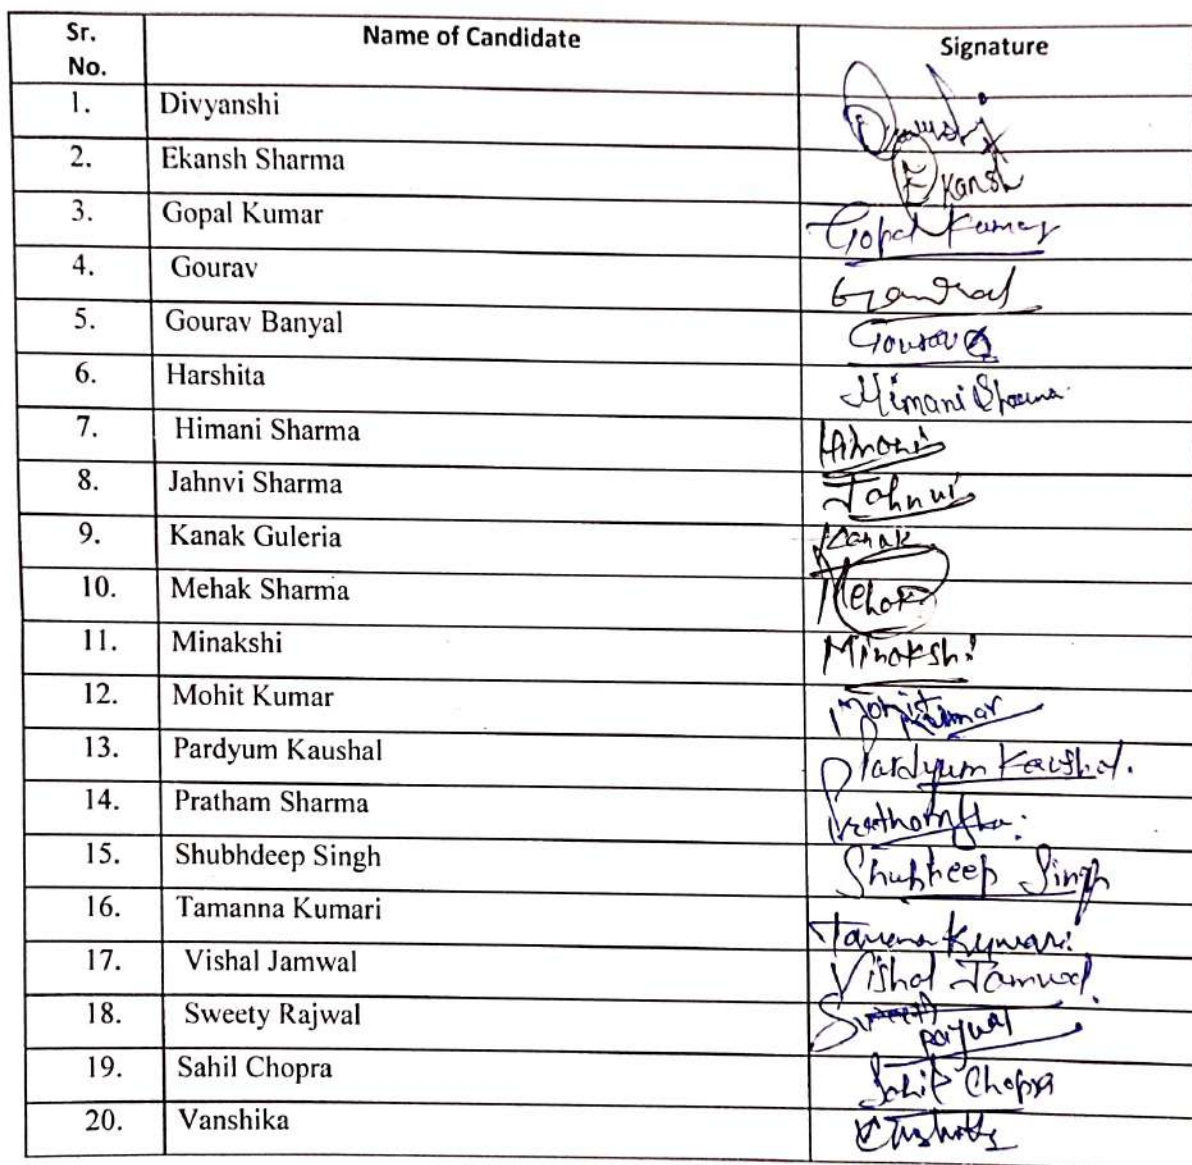 Sr. No. Name of Candidate Signature
1. Divyanshi
2. Ekansh Sharma Ekansh
3. Gopal Kumar Gopal Kumar
4. Gourav Gourav
5. Gourav Banyal Gourav
6. Harshita Himani Sharma
7. Himani Sharma Himani
8. Jahnvi Sharma Jahnvi
9. Kanak Guleria Kanak
10. Mehak Sharma Mehak
11. Minakshi Minakshi
12. Mohit Kumar Mohit Kumar
13. Pardyum Kaushal Pardyum Kaushal.
14. Pratham Sharma Pratham
15. Shubhdeep Singh Shubhdeep Singh
16. Tamanna Kumari Kumari
17. Vishal Jamwal Vishal Jamwal
18. Sweety Rajwal Sweety Rajwal
19. Sahil Chopra Sahil Chopra
20. Vanshika